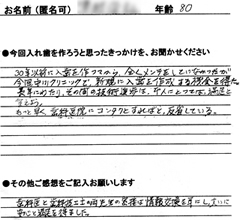 お名前（匿名可） 年齢 80
●今回入れ歯を作ろうと思ったきっかけを、お聞かせください
30年以前に入歯を作ってから、全くメンテをしていなかったが
今回中川クリニックで、新規に入歯を作成する機会を得た。
長年にわたり、その間の技術進歩は、本人にとっては、満足と
言えよう。
もっと早く歯科医院にコンタクトすればと、反省している。
●その他ご感想をご記入お願いします
歯科医と歯科技工士の両先生の実様は情報交換を耳にし、大いに
安心と満足を得ました。